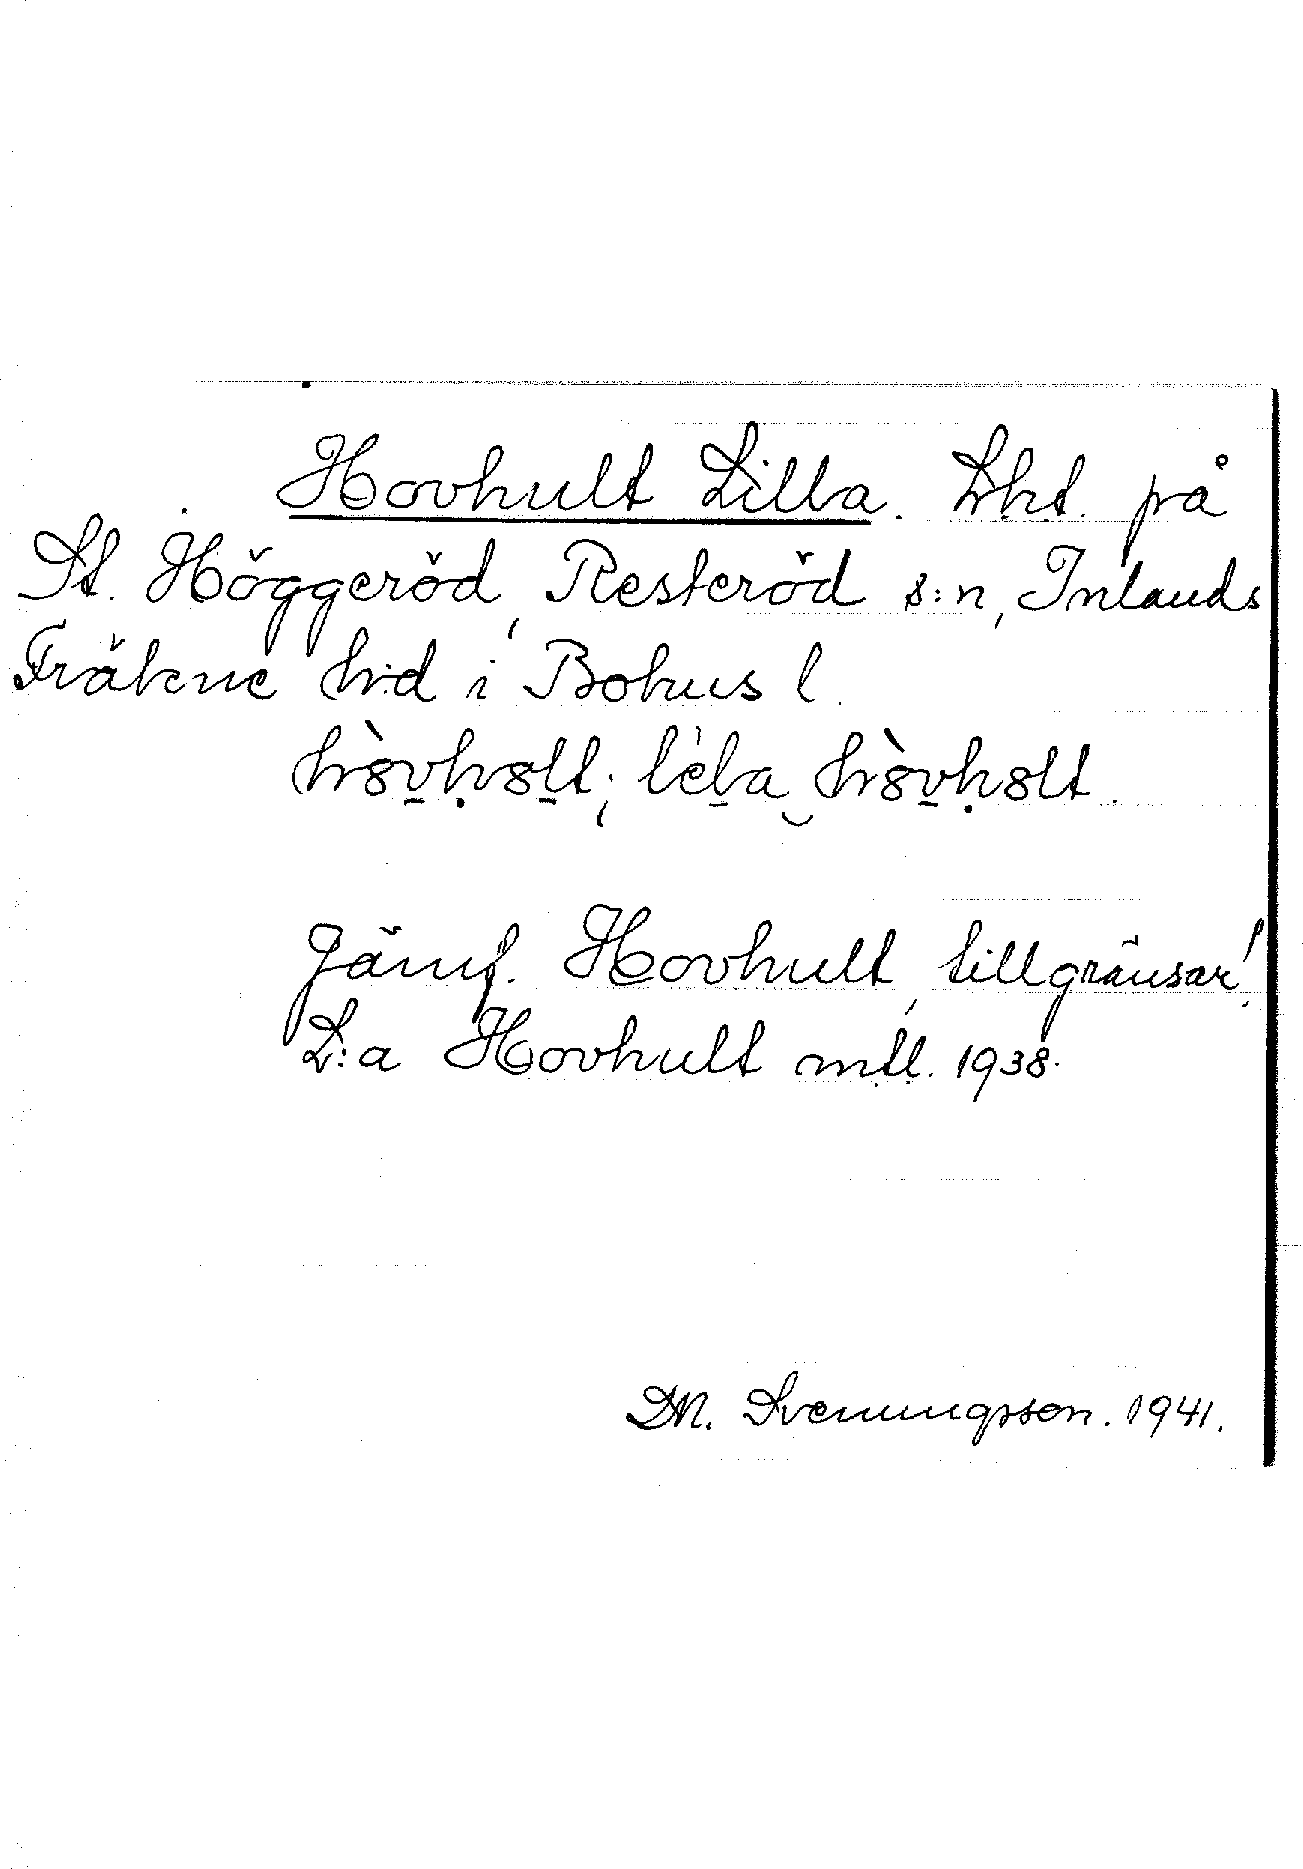 Hovhult Lilla. Lht. på
St. Höggeröd, Resteröd s:n, Inlands
Fräkne hd i Bohus l.
Jämf. Hovhult, tillgränsar!
L:a Hovhult mtl. 1938.
M. Svenungsson. 1941.